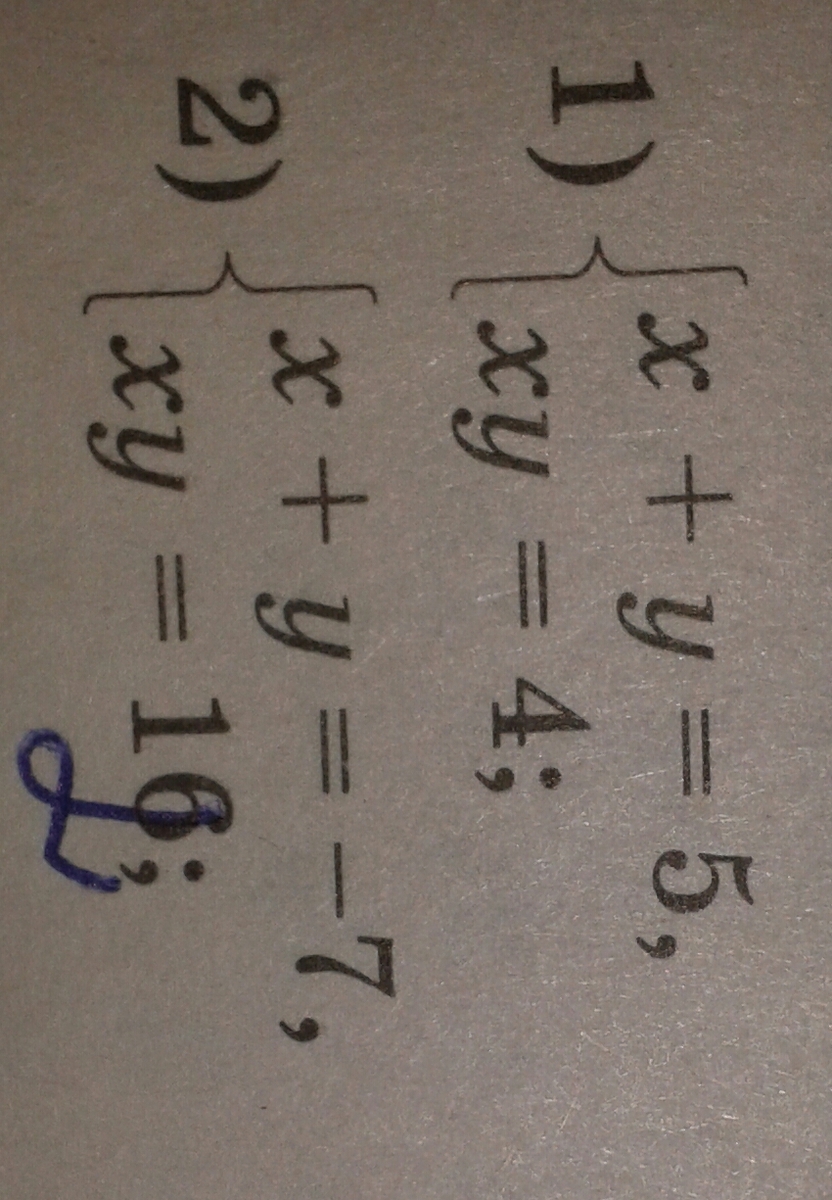 1) { x + y = 5,
xy = 4;
2) { x + y = −7,
xy = 16;
2